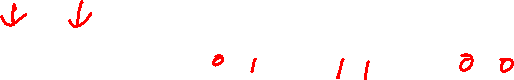 ↓ ↓
0 1 1 1 0 0